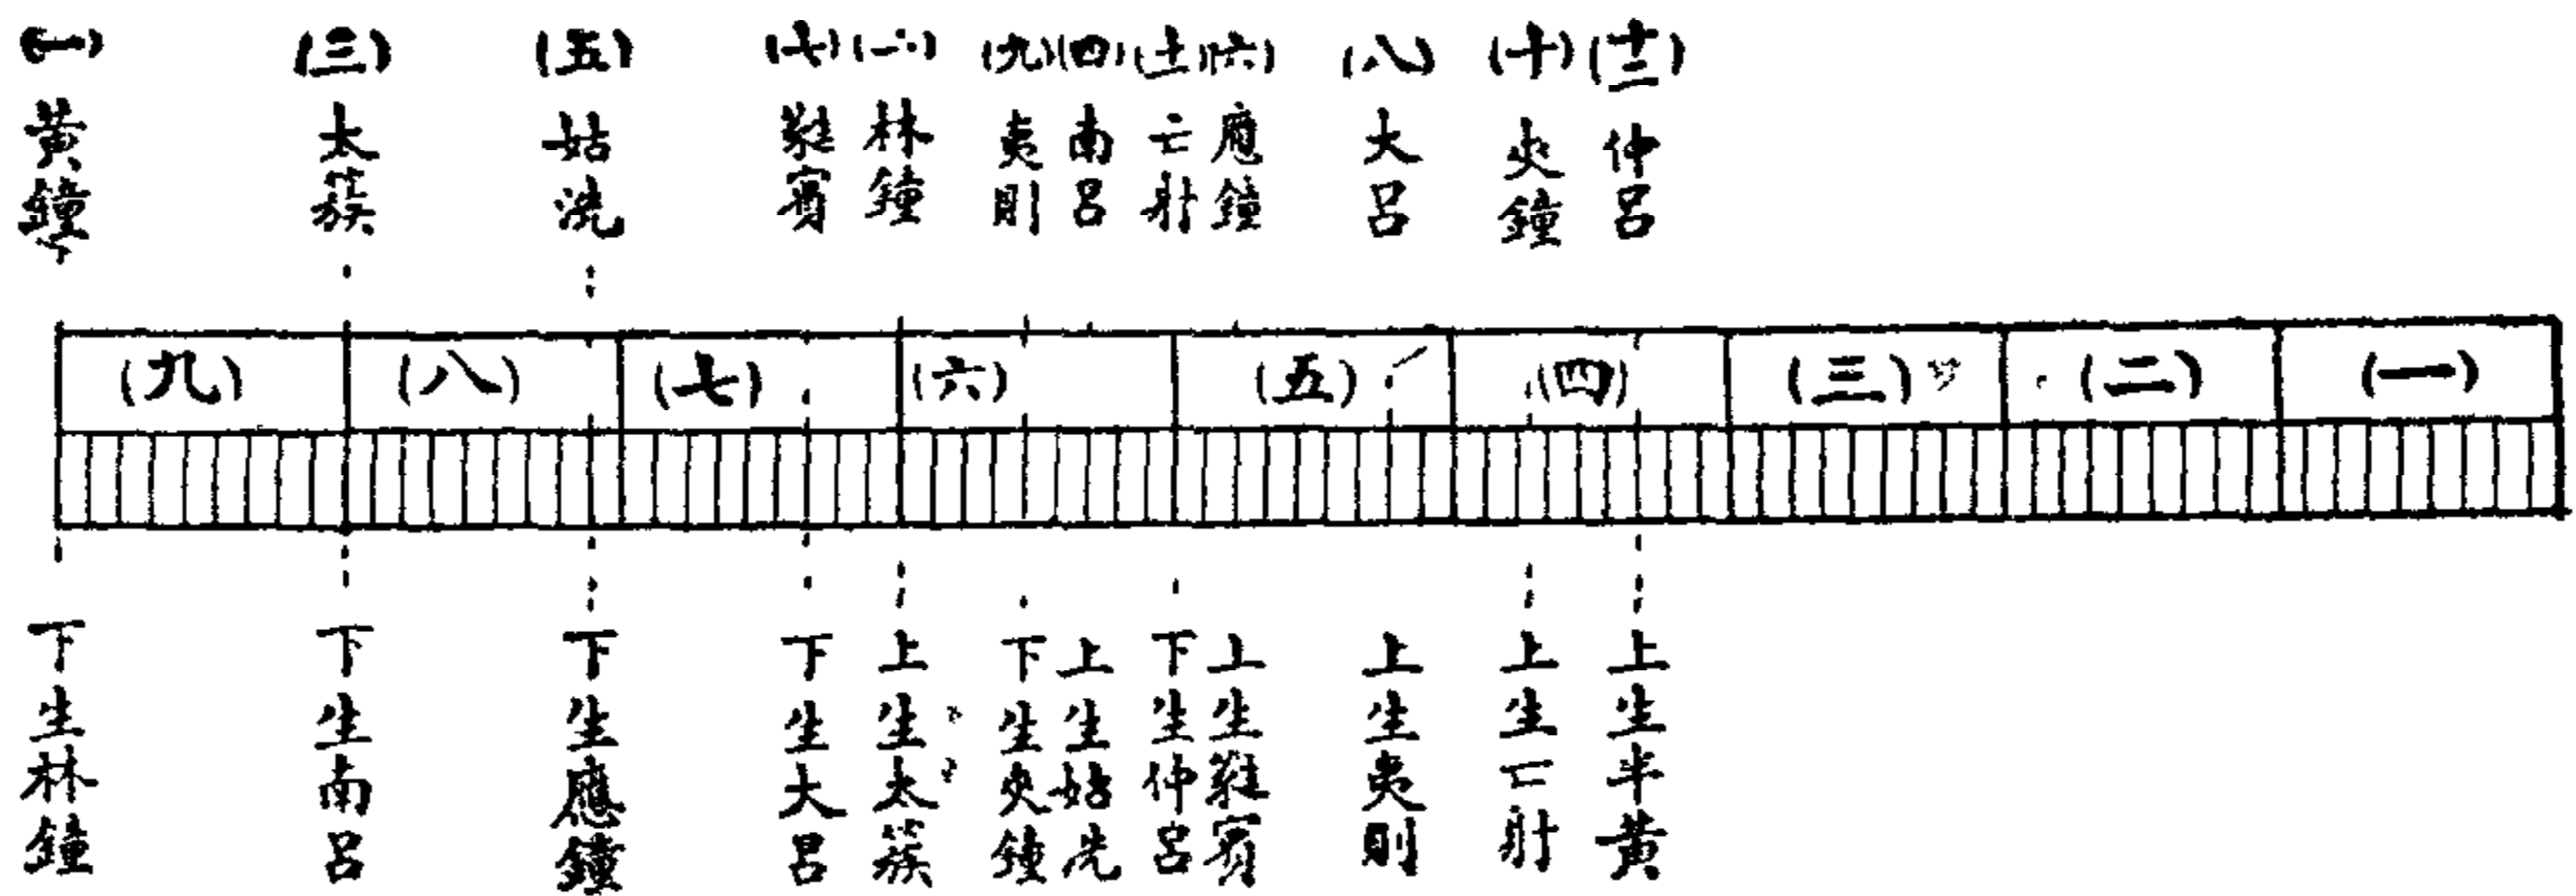 (一) 黃鐘
(三) 太簇
(五) 姑洗
(七) 蕤賓
(二) 林鐘
(九) 夷則
(四) 南呂
(十一) 亡射
(六) 應鐘
(八) 大呂
(十) 夾鐘
(十二) 仲呂
(九) (八) (七) (六) (五) (四) (三) (二) (一)
下生林鐘
下生南呂
下生應鐘
下生大呂
上生太簇
下生夾鐘
上生姑洗
下生仲呂
上生蕤賓
上生夷則
上生亡射
上生半黃